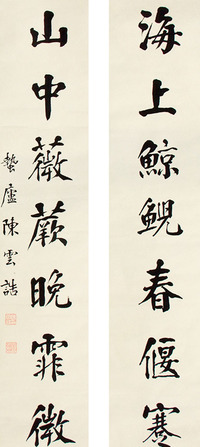 海上鯨鯢春偃蹇
山中薇蕨晚霏微
蟄廬陳雲誥